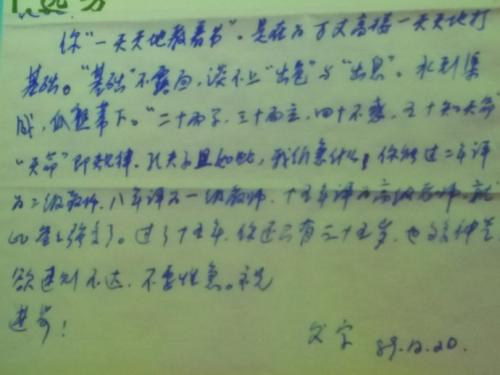 你“一天天地教着书”。是在为万丈高楼一天天地打
基础。“基础”不露面，谈不上“出色”与“出息”。水到渠
成，瓜熟蒂下。“二十而子，三十而立，四十不惑，五十知天命”
“天命”即规律。孔夫子且如此，我们急什么，你能过二年评
为二级教师，八年评为一级教师，十五年评为高级教师，就
过了十五年，你还只有三十五岁，也
欲速则不达，不要性急。祝
进步！
父字 89.12.20.